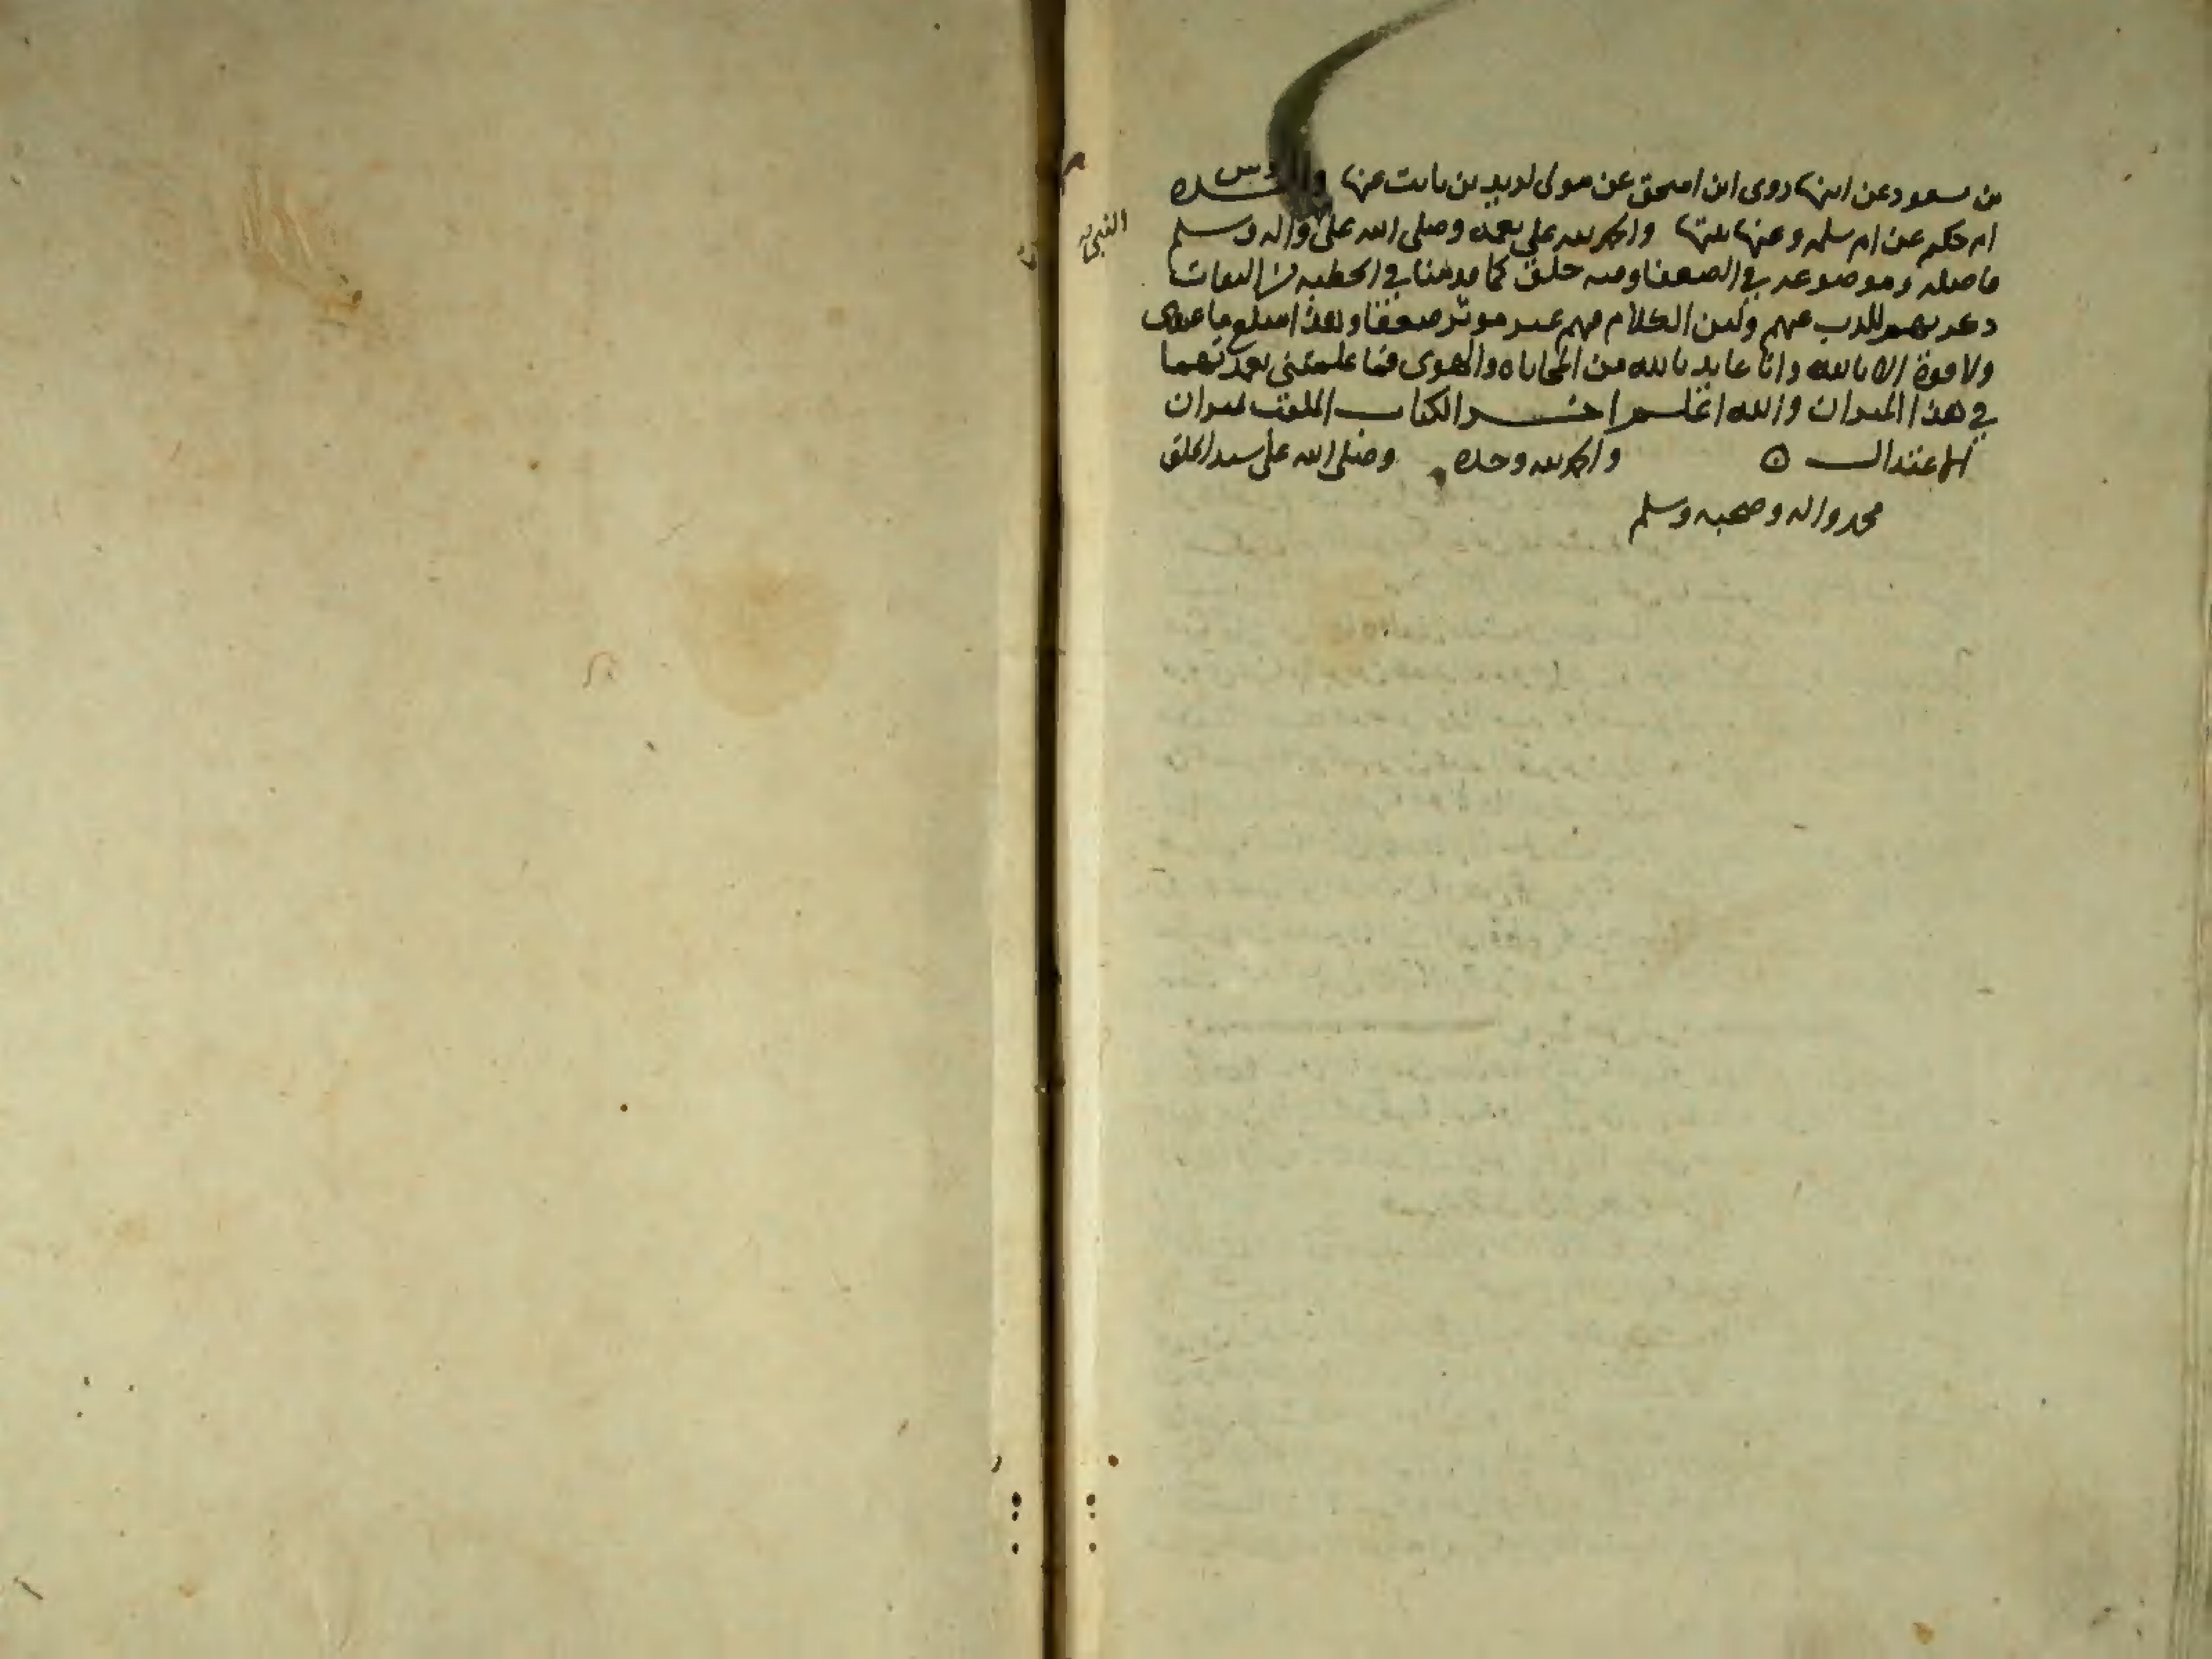 بن مسعود عن ابنها روى ابن اسحق عن مولى لزيد بن ثابت عنها والدة
ام حكيم عن ام سلمه وعنها بنتها والحمد لله على نعمه وصلى الله على واله وسلم
النبي
فاصله وموضوعه في الضعفا وفيه خلق كما قدمنا في الخطبه من الثقات
ذكرتهم للذب عنهم ولكن الكلام فيهم غير موثر ضعفا وهذا مبلغ ما عندى
ولا قوة الا بالله وانا عايذ بالله من المحاباه والهوى فما علمتنى تعمدتهما
في هذا الميزان والله اعلم اخر الكتاب الملقب بميزان
الاعتدال والحمد لله وحده وصلى الله على سيد الخلق
محمد واله وصحبه وسلم